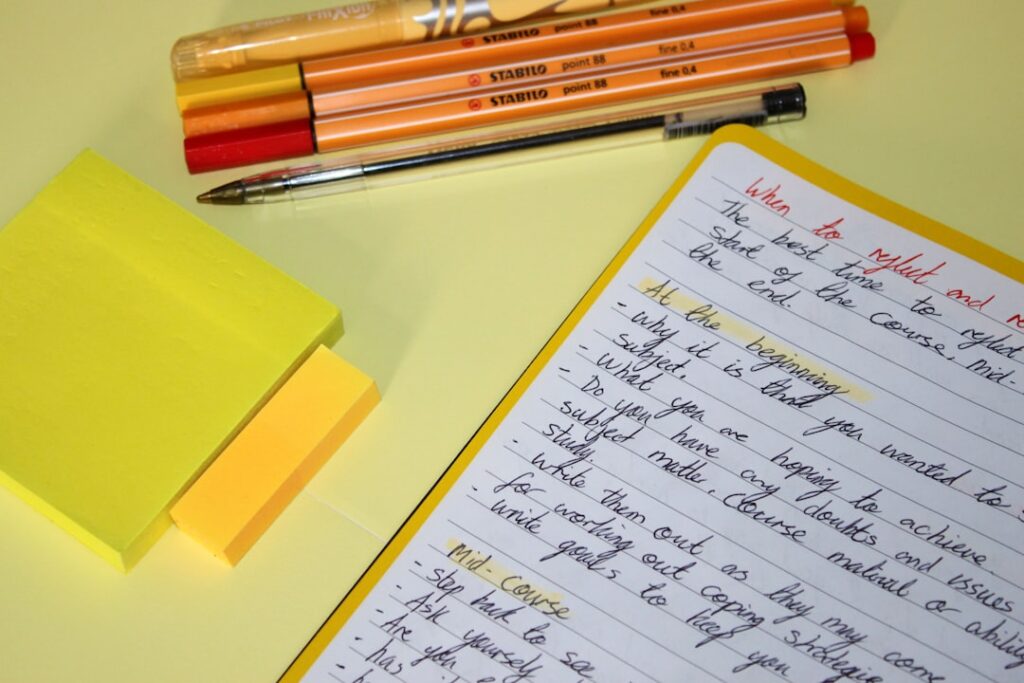 FriXion
STABILO point 88 fine 0,4
STABILO point 88 fine 0,4
STABILO point 88 fine 0,4
When to reflect and re
The best time to reflect
start of the course, mid-
the end.
At the beginning
- why it is that you wanted to
subject.
- What you are hoping to achieve.
- Do you have any doubts and issues
subject matter, course material or ability
study.
- write them out as they may come
for working out coping strategie
- write goals to keep you
Mid-Course
- step back to see
- Ask yourself
- Are you
- has